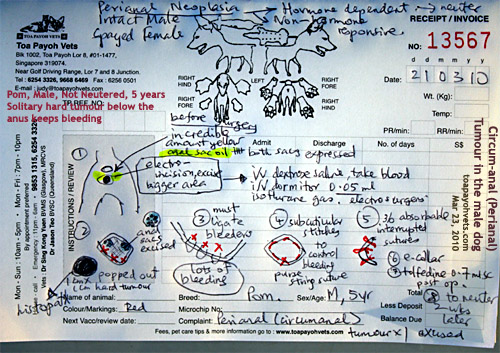 Perianal Neoplasia → Hormone dependent → neuter
Intact Male
Non-hormone
Spayed female
responsive
TOA PAYOH VETS
RECEIPT / INVOICE
Toa Payoh Vets
Blk 1002, Toa Payoh Lor 8, #01-1477,
Singapore 319074.
Near Golf Driving Range, Lor 7 and 8 Junction.
Tel : 6254 3326, 9668 6469 Fax : 6256 0501
E-mail : judy@toapayohvets.com
NO: 13567
Date: 210310
Wt. (Kg)
Temp:
PR/min: RR/min:
Pom, Male, Not Neutered, 5 years
Solitary hard tumour below the
anus keeps bleeding
RIGHT HIND
LEFT HIND
RIGHT HIND
RIGHT FORE
LEFT FORE
RIGHT FORE
before surgery
incredible
amount yellow
anal sac oil
both sacs expressed
Admit
Discharge
No. of days
S$
electro-
incision, excise
bigger area
IV dextrose saline take blood
IV domitor 0.05 ml
isoflurane gas. electrosurgery
INSTRUCTIONS / REVIEW
Mon - Sun : 9am - 5pm • Mon - Fri : 7pm - 10pm
By appointment preferred
Emergency : 11pm - 6am • 9853 1315, 6254 3326
Vets : Dr Sing Kong Yuen BVMS (Glasgow), MRCVS
Dr Jason Teo BVSC (Queensland)
1
2
anal sacs
excised
popped out
1 cm x 1 cm hard tumour
Histopath
3 must
ligate
bleeders
lots of
bleeding
4 subcuticular
stitches
to
control
bleeding
purse
string suture
5 3/0 absorbable
interrupted
sutures
6 e-collar
7 tolfedine 0.7ml SC
post op.
8 to neuter
2 wks
later
Name of animal:
Breed: Pom.
Sex/Age: M, 5yr
Colour/Markings: Red
Microchip No:
Less Deposit
Next Vacc/review date:
Complaint: Perianal (circumanal)
Balance Due
tumour x 1 excised
Fees, pet care tips & more information go to : www.toapayohvets.com
Circum-anal (Perianal)
Tumour in the male dog
toapayohvets.com
Mar 23, 2010